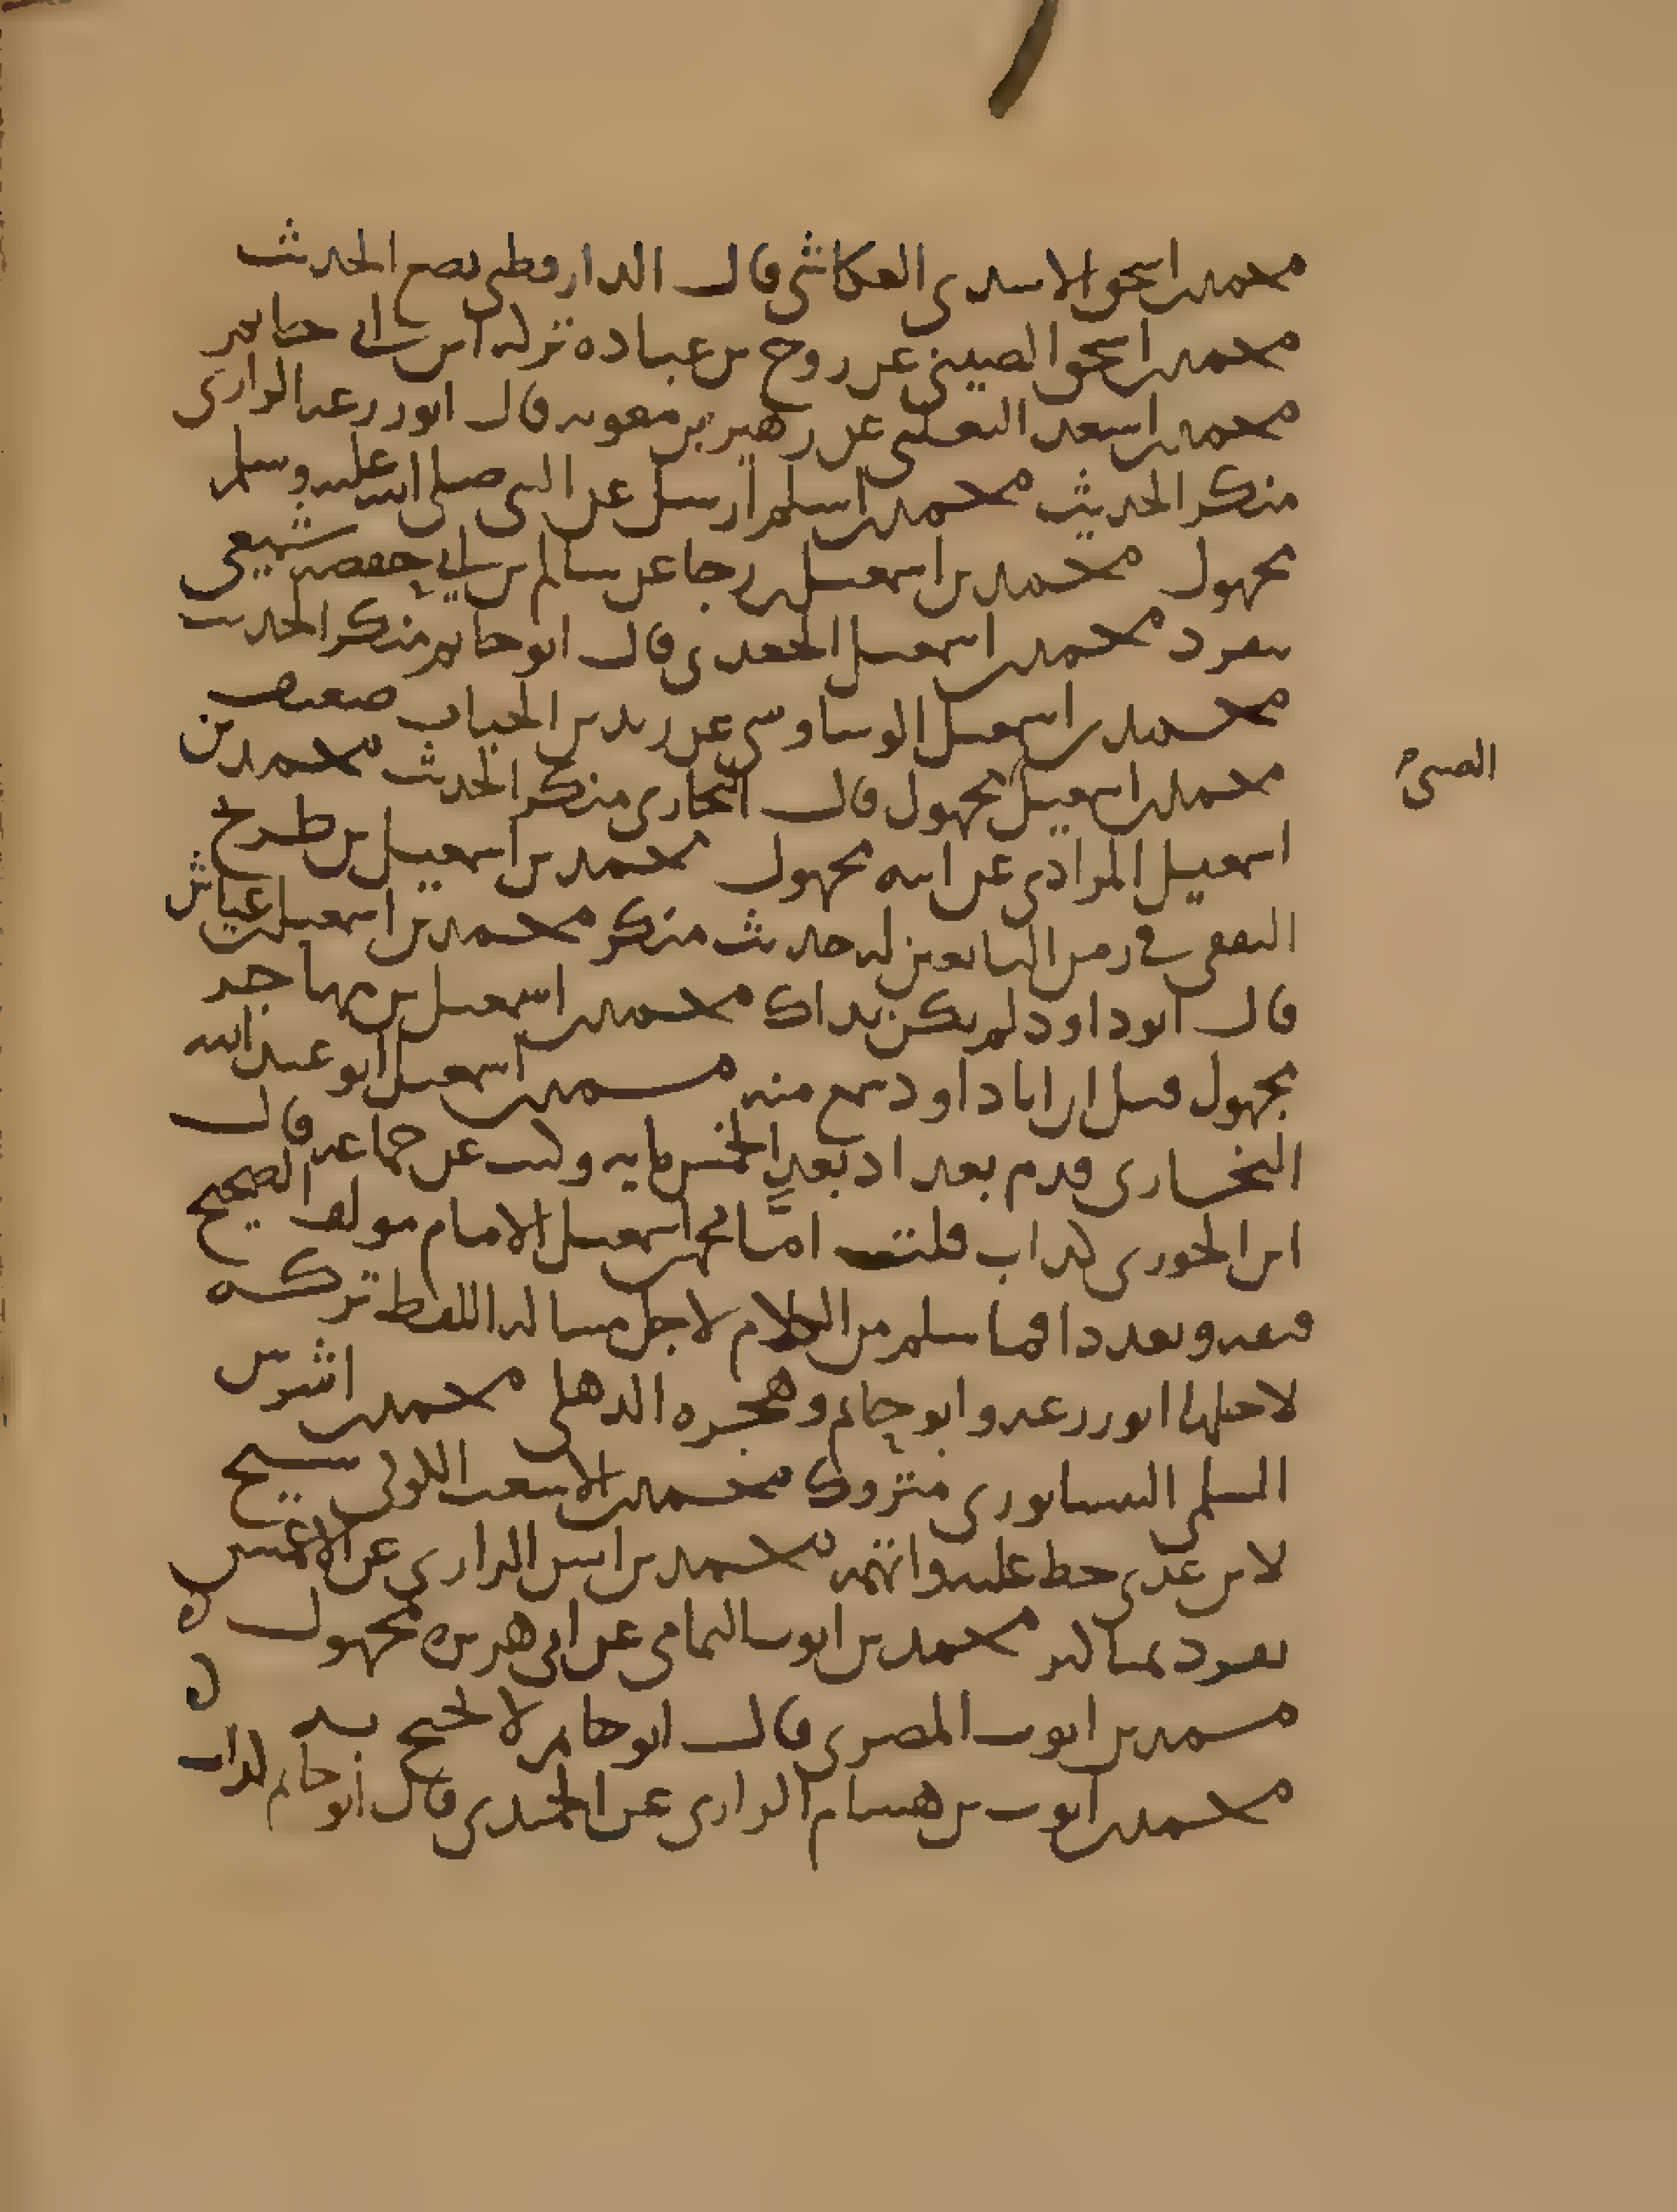 محمد بن اسحق الاسدي العكاشي قال الدارقطني يضع الحديث
محمد بن اسحق الصيني عن روح بن عباده تركه ابن ابي حاتم
محمد بن اسعد التغلبي عن زهير بن معويه قال ابو زرعه الرازي
منكر الحديث محمد بن اسلم ارسل عن النبي صلى الله عليه وسلم
مجهول محمد بن اسمعيل بن رجا عن سالم بن ابي حفصه شيعي
تفرد محمد بن اسمعيل الجعدي قال ابو حاتم منكر الحديث
محمد بن اسمعيل الوساوسي عن زيد بن الحباب ضعيف
محمد بن اسمعيل مجهول قال البخاري منكر الحديث محمد بن
اسمعيل المرادي عن ابيه مجهول محمد بن اسمعيل بن طريح
الثقفي في زمن التابعين له حديث منكر محمد بن اسمعيل بن عياش
قال ابو داود لم يكن بذاك محمد بن اسمعيل بن مهاجر
مجهول قيل ان ابا داود سمع منه محمد بن اسمعيل ابو عبد الله
البخاري قدم بغداد بعد الخمس مايه عن جماعه قال
ابن الجوزي كذاب قلت اما محمد بن اسمعيل الامام مولف الصحيح
فثقه وبعد ذا فما سلم من الكلام لاجل مساله اللفظ تركه
لاجلها ابو زرعه وابو حاتم وهجره الذهلي محمد بن اشرس
السلمي النيسابوري متروك محمد بن الاشعث الكوفي شيخ
لابن عدي حط عليه واتهمه محمد بن انس الرازي عن الاعمش
تفرد بمناكير محمد بن ابوسا اليمامي عن ابي هريره مجهول
محمد بن ايوب المصري قال ابو حاتم لا يحتج به
محمد بن ايوب بن هشام الرازي عن الحميدي قال ابو حاتم كذاب